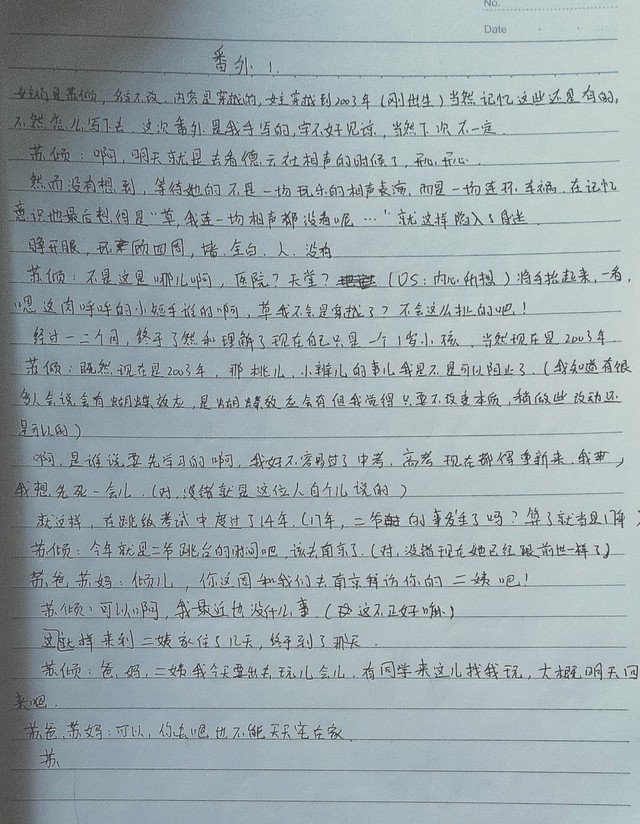 No.
Date
番外1.
女主角是苏倾,名字不改,内容是穿越的,女主穿越到2003年(刚出生)当然记忆这些还是有的,
不然怎么写下去.这次番外是我手写的,字不好见谅,当然下次不一定.
苏倾:啊,明天就是去看德云社相声的时候了,开心,开心.
然而没有想到,等待她的不是一场玩乐的相声表演,而是一场连环车祸.在记忆
意识她最后想但是“草,我连一场相声都没看呢…”就这样陷入了昏迷
睁开眼,环顾四周,墙.全白.人.没有
苏倾:不是这是哪儿啊,医院?天堂?(OS:内心所想)将手抬起来,一看,
嗯这肉呼呼的小短手谁的啊,草我不会是穿越了?不会这么扯的吧!
经过一二个月,终于了然和理解了现在自己只是一个1岁小孩.当然现在是2003年.
苏倾:既然现在是2003年,那桃儿,小辫儿的事儿我是不是可以阻止了.(我知道有很
多人会说会有蝴蝶效应,是蝴蝶效应会有但我觉得只要不改变本质,稍做些改动还
是可以的)
啊,是谁说要先学习的啊,我好不容易过了中考.高考现在都得重新来.我,
我想先死一会儿.(对,没错就是这位人自个儿说的)
就这样,在跳级考试中度过了14年.(17年,二爷的事发生了吗?算了就当是17年)
苏倾:今年就是二爷跳台的时间吧,该去南京了.(对,没错现在她已经跟前世一样了)
苏爸.苏妈:倾儿,你这周和我们去南京拜访你的二姨吧!
苏倾:可以啊,我最近也没什么事.(这不正好嘛.)
就这样来到二姨家住了几天,终于到了那天.
苏倾:爸,妈,二姨我今天要出去玩儿会儿.有同学来这儿找我玩,大概明天回
来吧.
苏爸.苏妈:可以,你去吧也不能天天宅在家.
苏